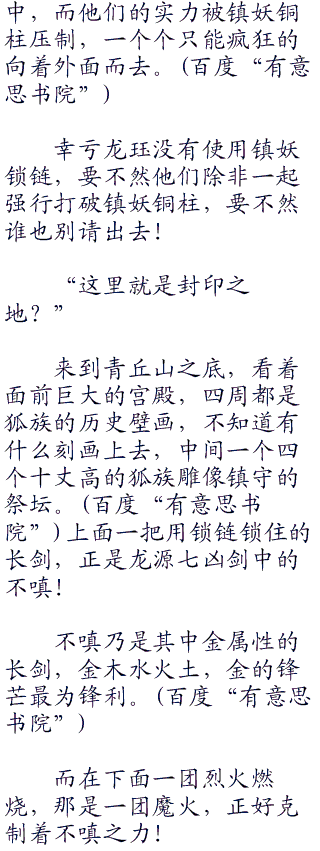 中，而他们的实力被镇妖铜
柱压制，一个个只能疯狂的
向着外面而去。(百度“有意
思书院”)
幸亏龙珏没有使用镇妖
锁链，要不然他们除非一起
强行打破镇妖铜柱，要不然
谁也别请出去！
“这里就是封印之
地？”
来到青丘山之底，看着
面前巨大的宫殿，四周都是
狐族的历史壁画，不知道有
什么刻画上去，中间一个四
个十丈高的狐族雕像镇守的
祭坛。(百度“有意思书
院”)上面一把用锁链锁住的
长剑，正是龙源七凶剑中的
不嗔！
不嗔乃是其中金属性的
长剑，金木水火土，金的锋
芒最为锋利。(百度“有意思
书院”)
而在下面一团烈火燃
烧，那是一团魔火，正好克
制着不嗔之力！